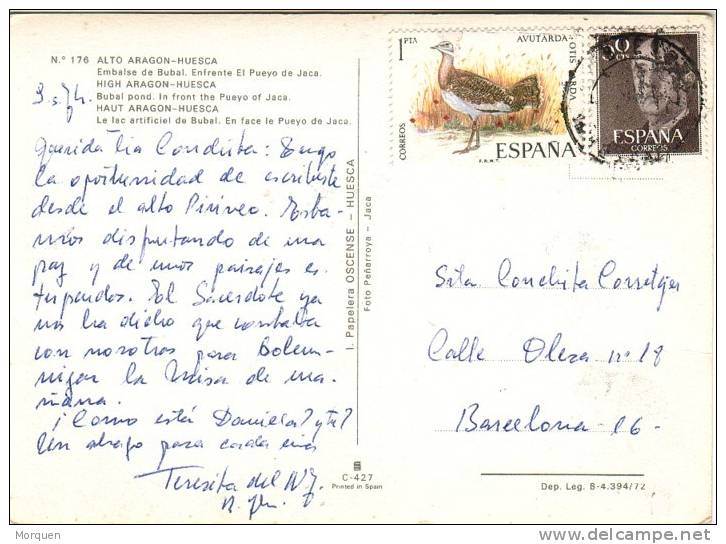 N.° 176 ALTO ARAGON-HUESCA
Embalse de Bubal. Enfrente El Pueyo de Jaca.
HIGH ARAGON-HUESCA
Bubal pond. In front the Pueyo of Jaca.
HAUT ARAGON-HUESCA
Le lac artificiel de Bubal. En face le Pueyo de Jaca.
Querida tia Conchita: Tengo
la oportunidad de escribirte
desde el alto Pirineo. Esta-
mos disfrutando de una
paz y de unos paisajes es-
tupendos. El Sacerdote ya
nos ha dicho que contaba
con nosotros para Solem-
nizar la Misa de ma-
ñana.
¡Como está Daniela? y tu?
Un abrazo para cada una
Teresita del N. J.
I. Papelera OSCENSE - HUESCA
Foto Peñarroya - Jaca
C-427
Printed in Spain
1 PTA
AVUTARDA-OTIS TARDA
CORREOS
F.N.M.T.
ESPAÑA
50 CTS
ESPAÑA
CORREOS
Srta Conchita Corretjer
Calle Oleza nº 18
Barcelona 16-
Dep. Leg. B-4.394/72
Morquen
www.delcampe.net